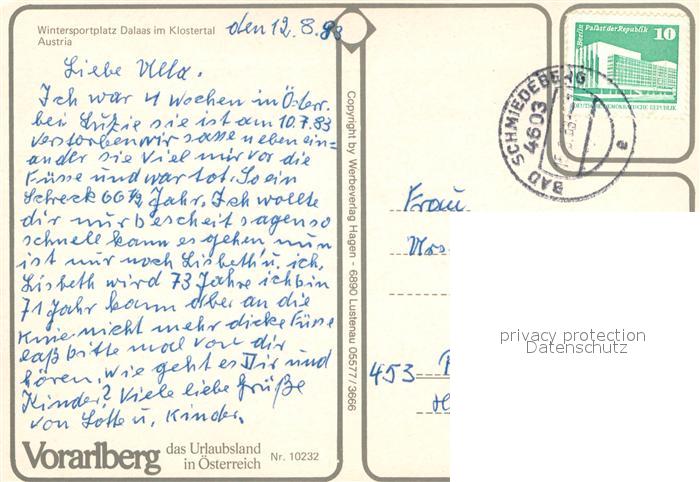 Wintersportplatz Dalaas im Klostertal
Austria
den 12.8.83
Liebe Ulla.
Ich war 4 Wochen in Öster.
bei Luzie sie ist am 10.7.83
verstorben wir sasse neben ein=
ander sie viel mir vor die
Füsse und war tot. So ein
Schreck 66½ Jahr. Ich wollte
dir nur bescheit sagen so
schnell kann es gehen, nun
ist nur noch Lisbeth u, ich,
Lisbeth wird 73 Jahre ich bin
71 Jahr kann aber an die
Knie nicht mehr dicke Füsse
laß bitte mal von dir
hören. Wie geht es Dir und
Kinder? Viele liebe Grüße
von Lotte u, Kinder.
Vorarlberg das Urlaubsland
in Österreich
Nr. 10232
Copyright by Werbeverlag Hagen - 6890 Lustenau 05577/3666
Berlin Palast der Republik 10
DEUTSCHE DEMOKRATISCHE REPUBLIK
BAD SCHMIEDEBERG
4603
a
Frau
453
privacy protection
Datenschutz